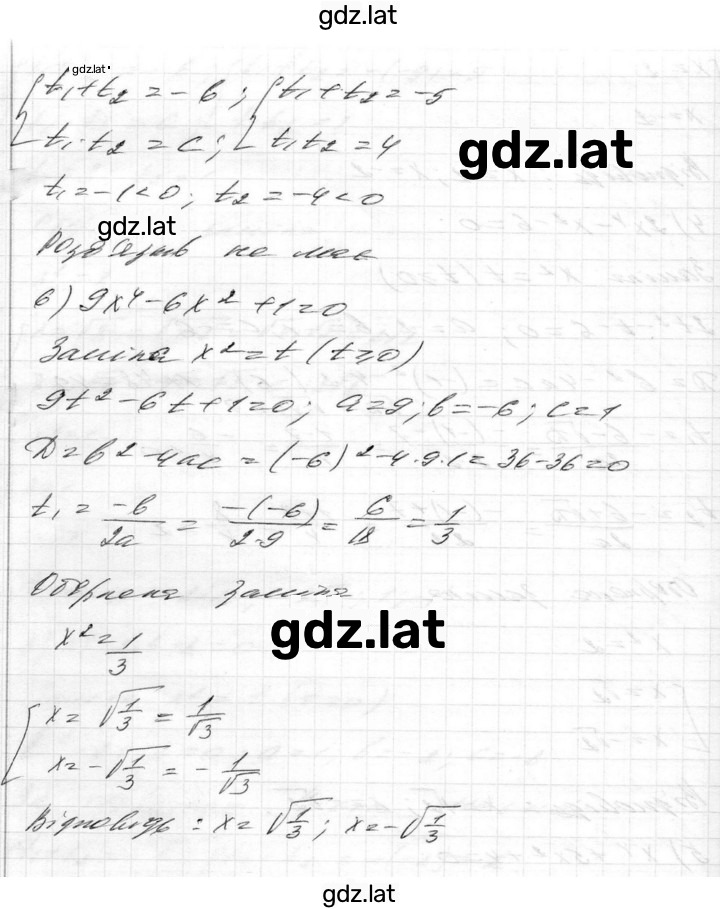 gdz.lat
gdz.lat
{ t₁+t₂=-b; { t₁+t₂=-5
{ t₁·t₂=c; { t₁t₂=4
gdz.lat
t₁=-1<0; t₂=-4<0
gdz.lat
Розв'язків не має
6) 9x⁴-6x²+1=0
Заміна x²=t (t≥0)
9t²-6t+1=0; a=9; b=-6; c=1
D=b²-4ac=(-6)²-4·9·1=36-36=0
t₁=-b/2a=-(-6)/2·9=6/18=1/3
Обернена заміна
gdz.lat
x²=1/3
[ x=√1/3=1/√3
[ x=-√1/3=-1/√3
Відповідь: x=√1/3; x=-√1/3
gdz.lat